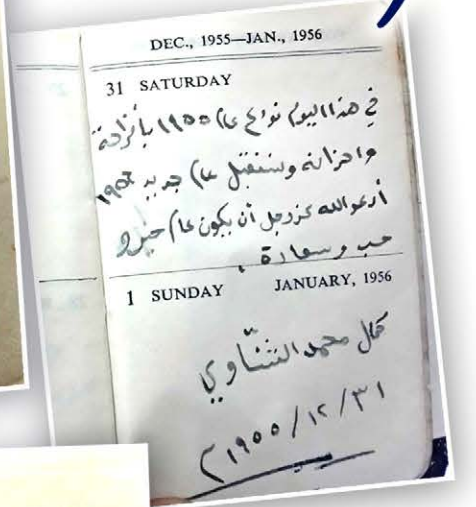 DEC., 1955—JAN., 1956
31 SATURDAY
في هذا اليوم نودع عام ١٩٥٥ بأفراحه
واحزانه ونستقبل عام جديد ١٩٥٦
أدعو الله عز وجل أن يكون عام خير و
حب وسعادة .
1 SUNDAY JANUARY, 1956
كمال محمد الششاوي
٣١/١٢/١٩٥٥ م